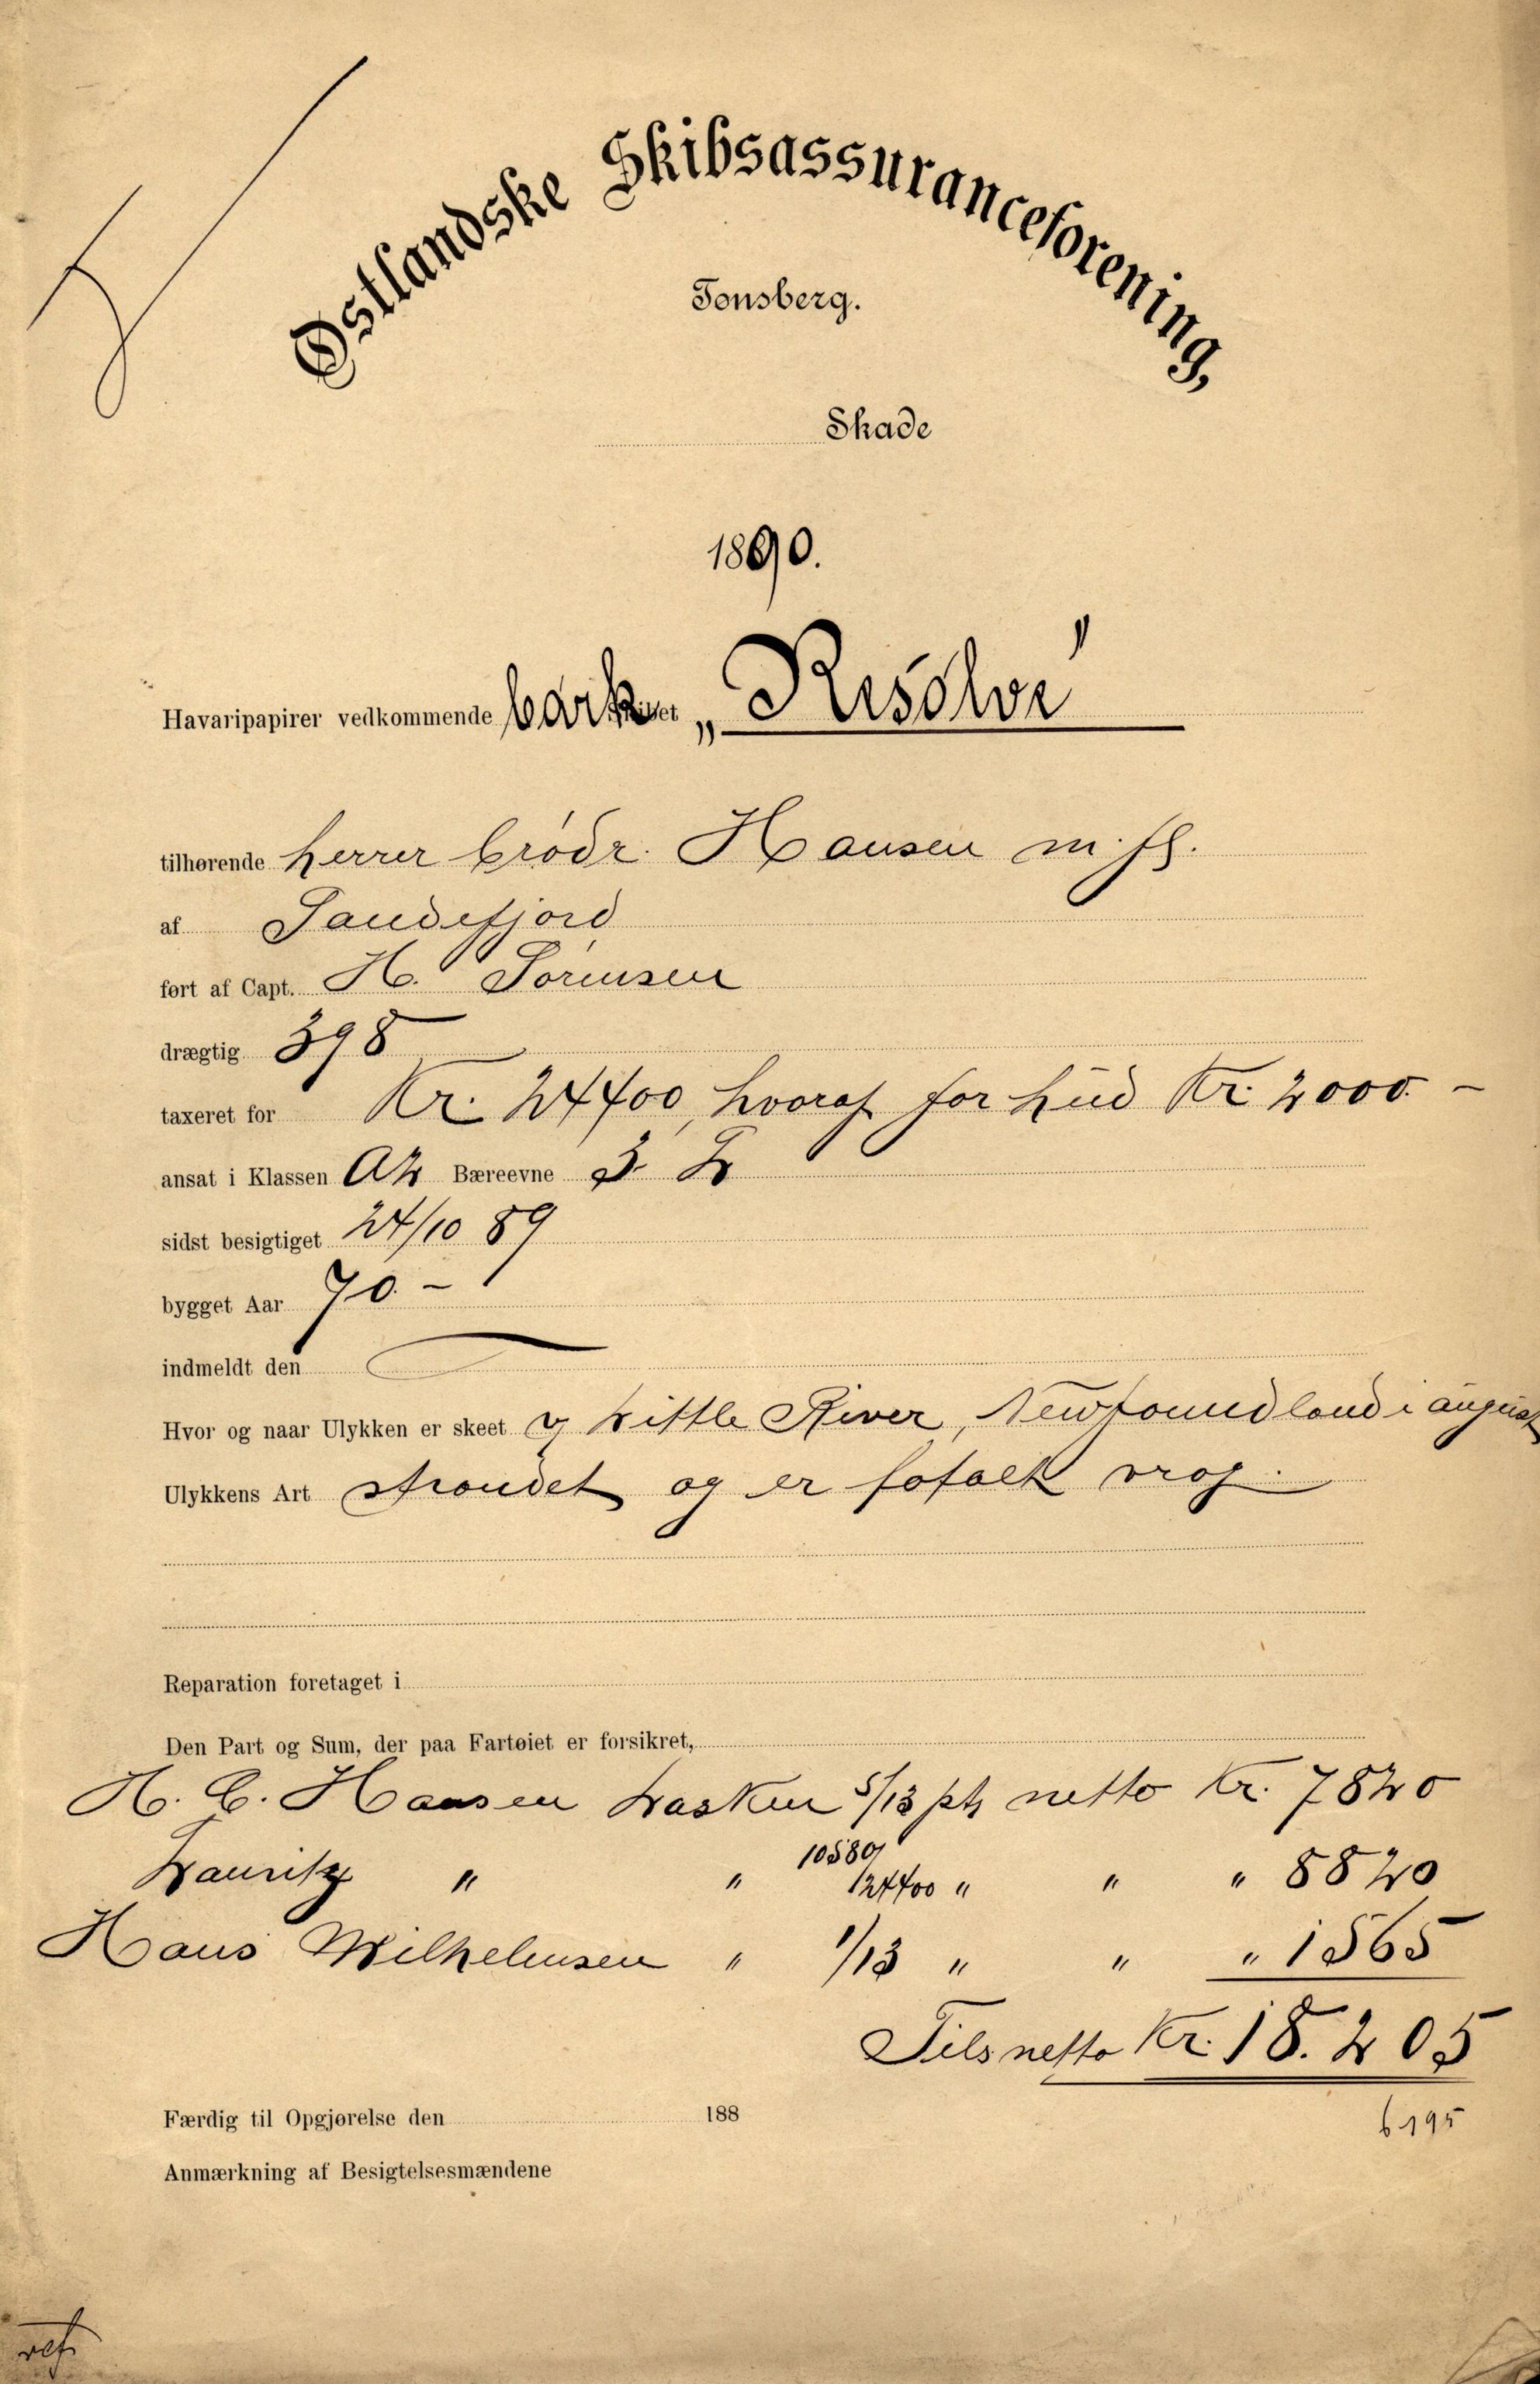 Østlandske Skibsassuranceforening,
Tønsberg.
Skade
1890.
Havaripapirer vedkommende bark skibet „Resolve"
tilhørende herrer brødr. Hansen m. fl.
af Sandefjord
ført af Capt. H. Sørensen
drægtig 398
taxeret for Kr. 24400, hvoraf for hud Kr. 2000. –
ansat i Klassen A2 Bæreevne 3. L
sidst besigtiget 24/10 89
bygget Aar 70 –
indmeldt den
Hvor og naar Ulykken er skeet v Little River, Newfoundland i august
Ulykkens Art strandet og er totalt vrag.
Reparation foretaget i
Den Part og Sum, der paa Fartøiet er forsikret,
H. C. Hansen Kasken 5/13 pts netto Kr. 7820
Lauritz " " 10580/24400 " " " 8820
Hans Wilhelmsen " 1/13 " " " 1565
Tils netto Kr. 18.205
6195
Færdig til Opgjørelse den 188
Anmærkning af Besigtelsesmændene